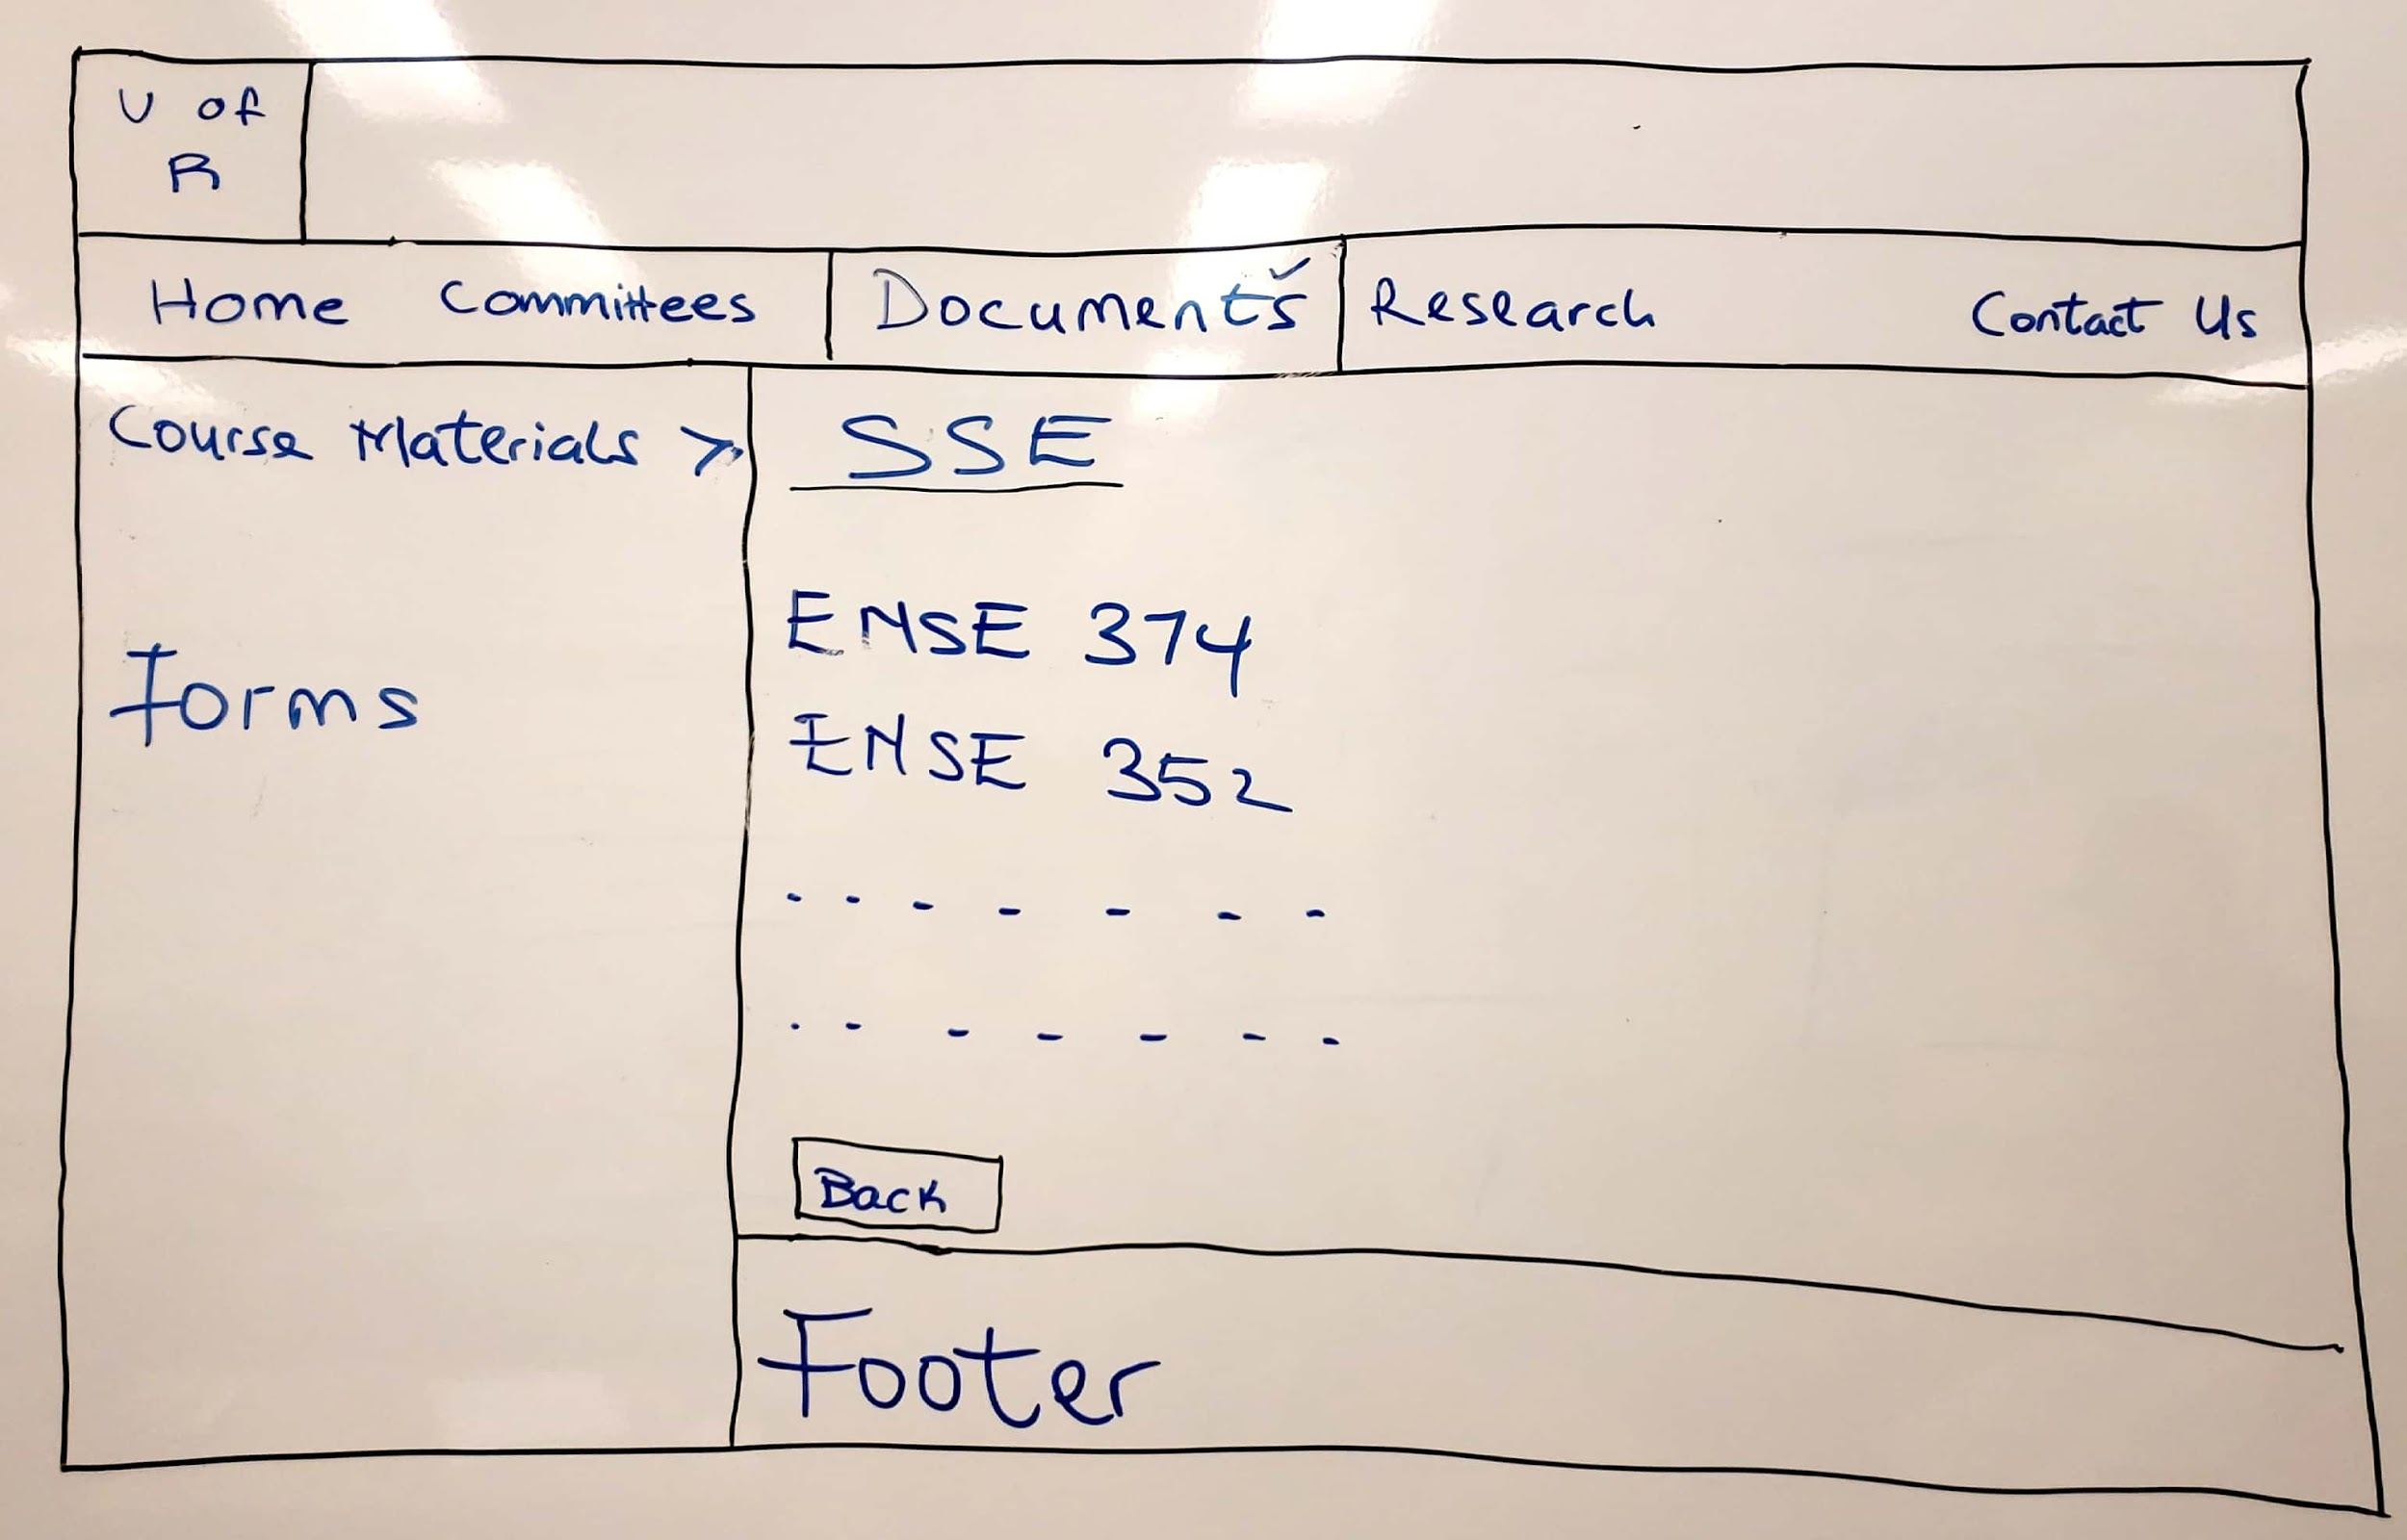 U of
R
Home Committees Documents Research Contact Us
Course Materials >
Forms
SSE
ENSE 374
ENSE 352
. . - - - - -
. - - - - - -
Back
Footer